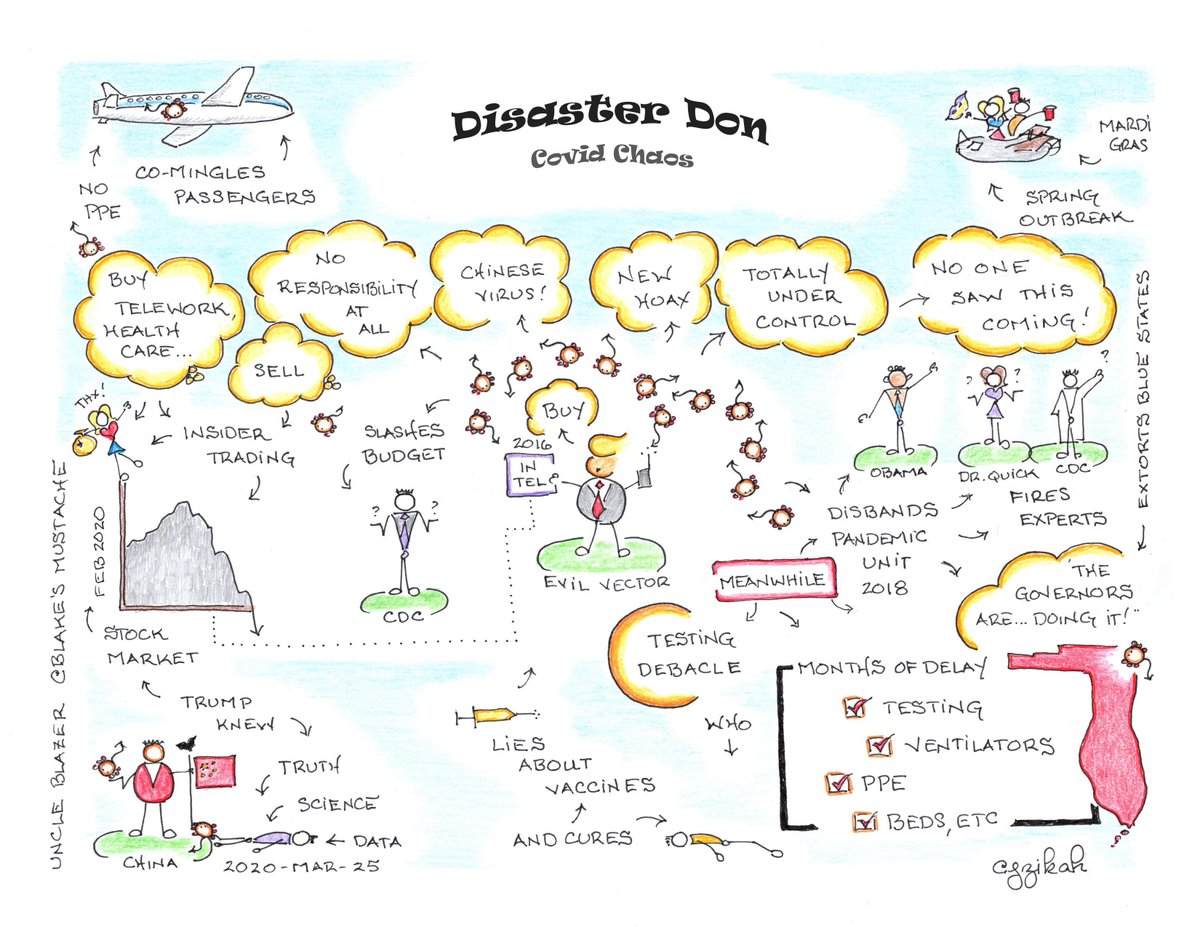 Disaster Don
Covid Chaos
CO-MINGLES
PASSENGERS
NO
PPE
MARDI
GRAS
SPRING
OUTBREAK
BUY
TELEWORK,
HEALTH
CARE...
SELL
NO
RESPONSIBILITY
AT
ALL
CHINESE
VIRUS!
NEW
HOAX
TOTALLY
UNDER
CONTROL
NO ONE
SAW THIS
COMING!
THX!
INSIDER
TRADING
SLASHES
BUDGET
BUY
2016
IN
TEL
?
?
CDC
EVIL VECTOR
OBAMA
?
?
DR. QUICK
?
CDC
FIRES
EXPERTS
DISBANDS
PANDEMIC
UNIT
2018
MEANWHILE
EXTORTS BLUE STATES
"THE
GOVERNORS
ARE... DOING IT!"
FEB 2020
STOCK
MARKET
TRUMP
KNEW
TRUTH
SCIENCE
DATA
CHINA
2020-MAR-25
LIES
ABOUT
VACCINES
AND CURES
TESTING
DEBACLE
WHO
MONTHS OF DELAY
TESTING
VENTILATORS
PPE
BEDS, ETC
UNCLE BLAZER @BLAKE'S MUSTACHE
cyzikah